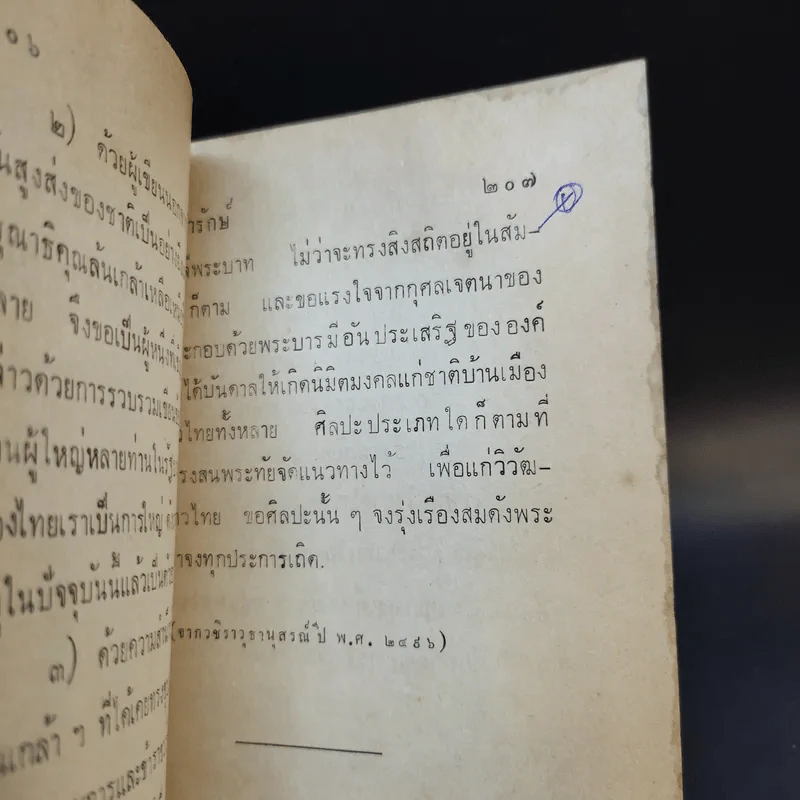 ๐๖
๒) ด้วยผู้เขียน
สูงส่งของชาติเป็นอย่าง
คุณาธิคุณล้นเกล้าเหลือ
จึงขอเป็นผู้หนึ่งที่
ด้วยการรวบรวมเขียน
ผู้ใหญ่หลายท่านใน
ของไทยเราเป็นการใหญ่
ในปัจจุบันนี้แล้วเป็น
๓) ด้วยความ
เกล้า ๆ ที่ได้เคย
การและข้าราช
๒๐๗
ารักษ์
พระบาท ไม่ว่าจะทรงสิงสถิตอยู่ในสัม-
ก็ตาม และขอแรงใจจากกุศลเจตนาของ
ะกอบด้วยพระบารมีอันประเสริฐขององค์
ได้บันดาลให้เกิดนิมิตมงคลแก่ชาติบ้านเมือง
ไทยทั้งหลาย ศิลปะประเภทใดก็ตามที่
รงสนพระทัยจัดแนวทางไว้ เพื่อแก่วิวัฒ-
าวไทย ขอศิลปะนั้น ๆ จงรุ่งเรืองสมดังพระ
าจงทุกประการเถิด.
(จากวชิราวุธานุสรณ์ปี พ.ศ. ๒๔๙๖)